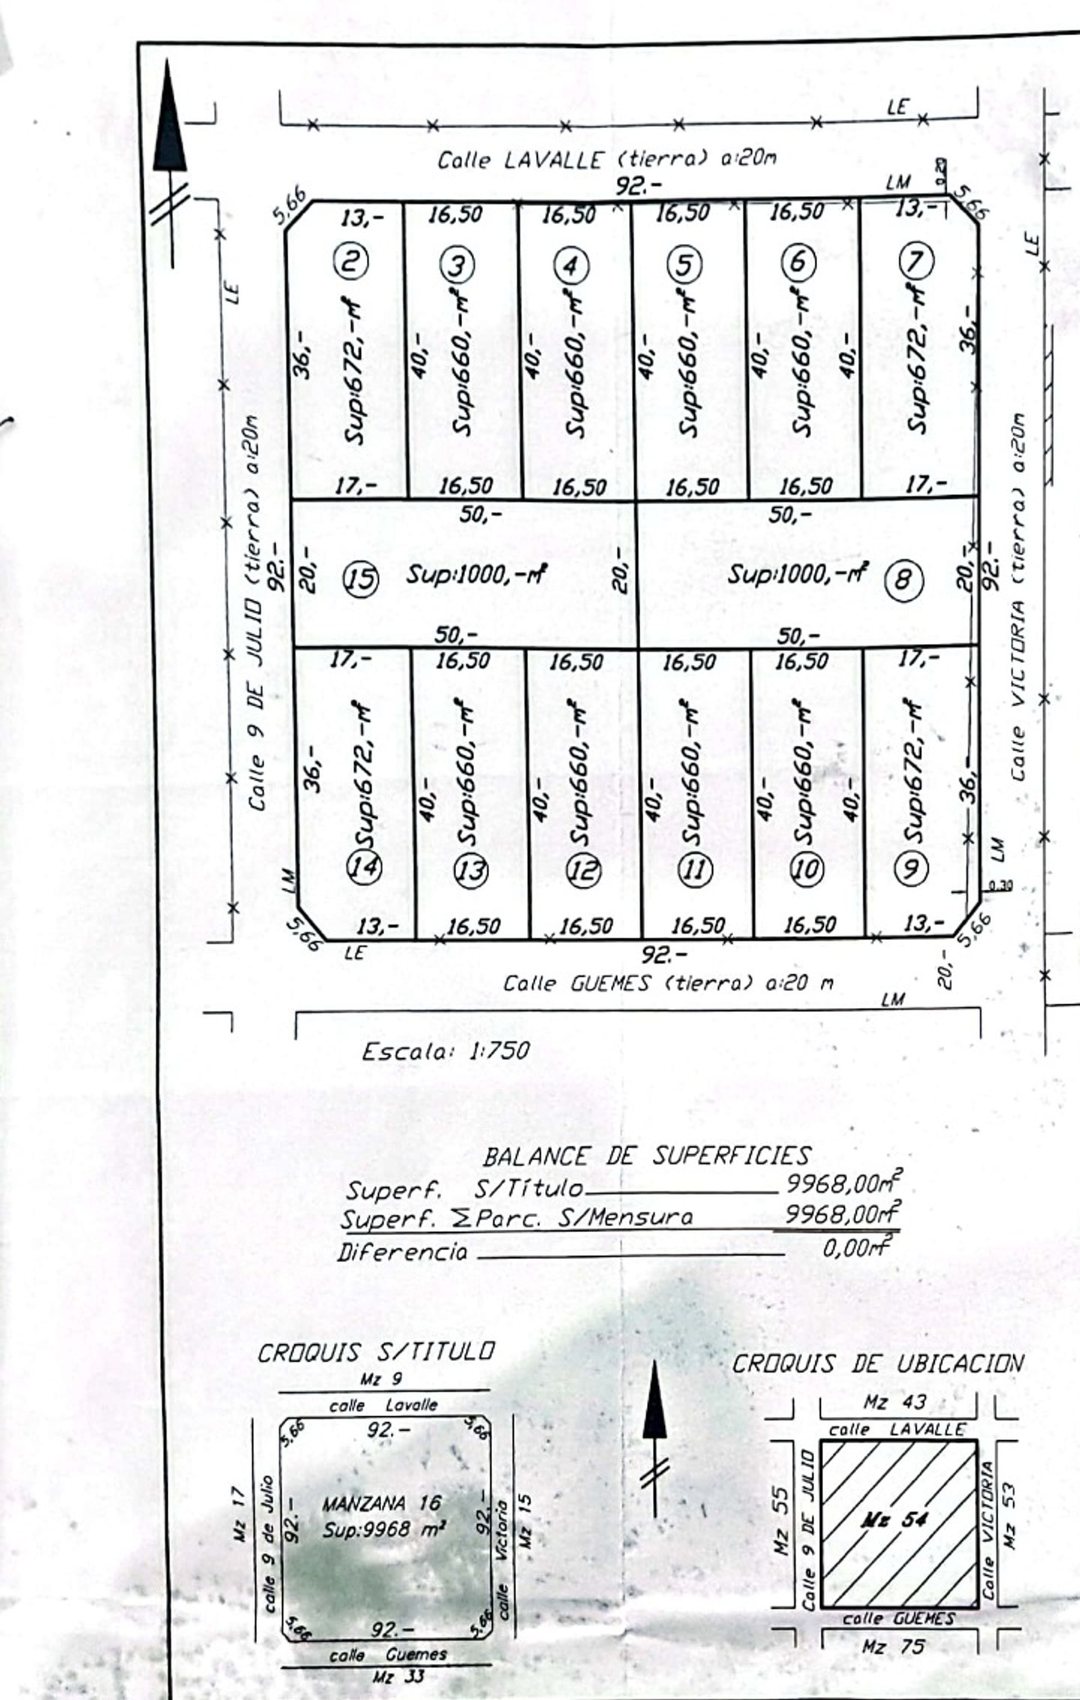 LE
Calle LAVALLE (tierra) a:20m
92.-
LM
0.20
5,66
5,66
13,-
16,50
16,50
16,50
16,50
13,-
2
3
4
5
6
7
LE
LE
36,-
Sup:672,-m²
40,-
Sup:660,-m²
40,-
Sup:660,-m²
40,-
Sup:660,-m²
40,-
Sup:660,-m²
40,-
Sup:672,-m²
36,-
17,-
16,50
16,50
16,50
16,50
17,-
50,-
50,-
Calle 9 DE JULIO (tierra) a:20m
92.-
20,-
15
Sup:1000,-m²
20,-
Sup:1000,-m²
8
20,-
92.-
Calle VICTORIA (tierra) a:20m
50,-
50,-
17,-
16,50
16,50
16,50
16,50
17,-
36,-
Sup:672,-m²
40,-
Sup:660,-m²
40,-
Sup:660,-m²
40,-
Sup:660,-m²
40,-
Sup:660,-m²
40,-
Sup:672,-m²
36,-
LM
LM
14
13
12
11
10
9
0.30
5,66
13,-
16,50
16,50
16,50
16,50
13,-
5,66
LE
92.-
20,-
Calle GUEMES (tierra) a:20 m
LM
Escala: 1:750
BALANCE DE SUPERFICIES
Superf. S/Título 9968,00m²
Superf. ΣParc. S/Mensura 9968,00m²
Diferencia 0,00m²
CROQUIS S/TITULO
Mz 9
calle Lavalle
5,66
92.-
5,66
Mz 17
calle 9 de Julio
92.-
MANZANA 16
Sup:9968 m²
92.-
calle Victoria
Mz 15
5,66
92.-
5,66
calle Guemes
Mz 33
CROQUIS DE UBICACION
Mz 43
calle LAVALLE
Mz 55
Calle 9 DE JULIO
Mz 54
Calle VICTORIA
Mz 53
calle GUEMES
Mz 75